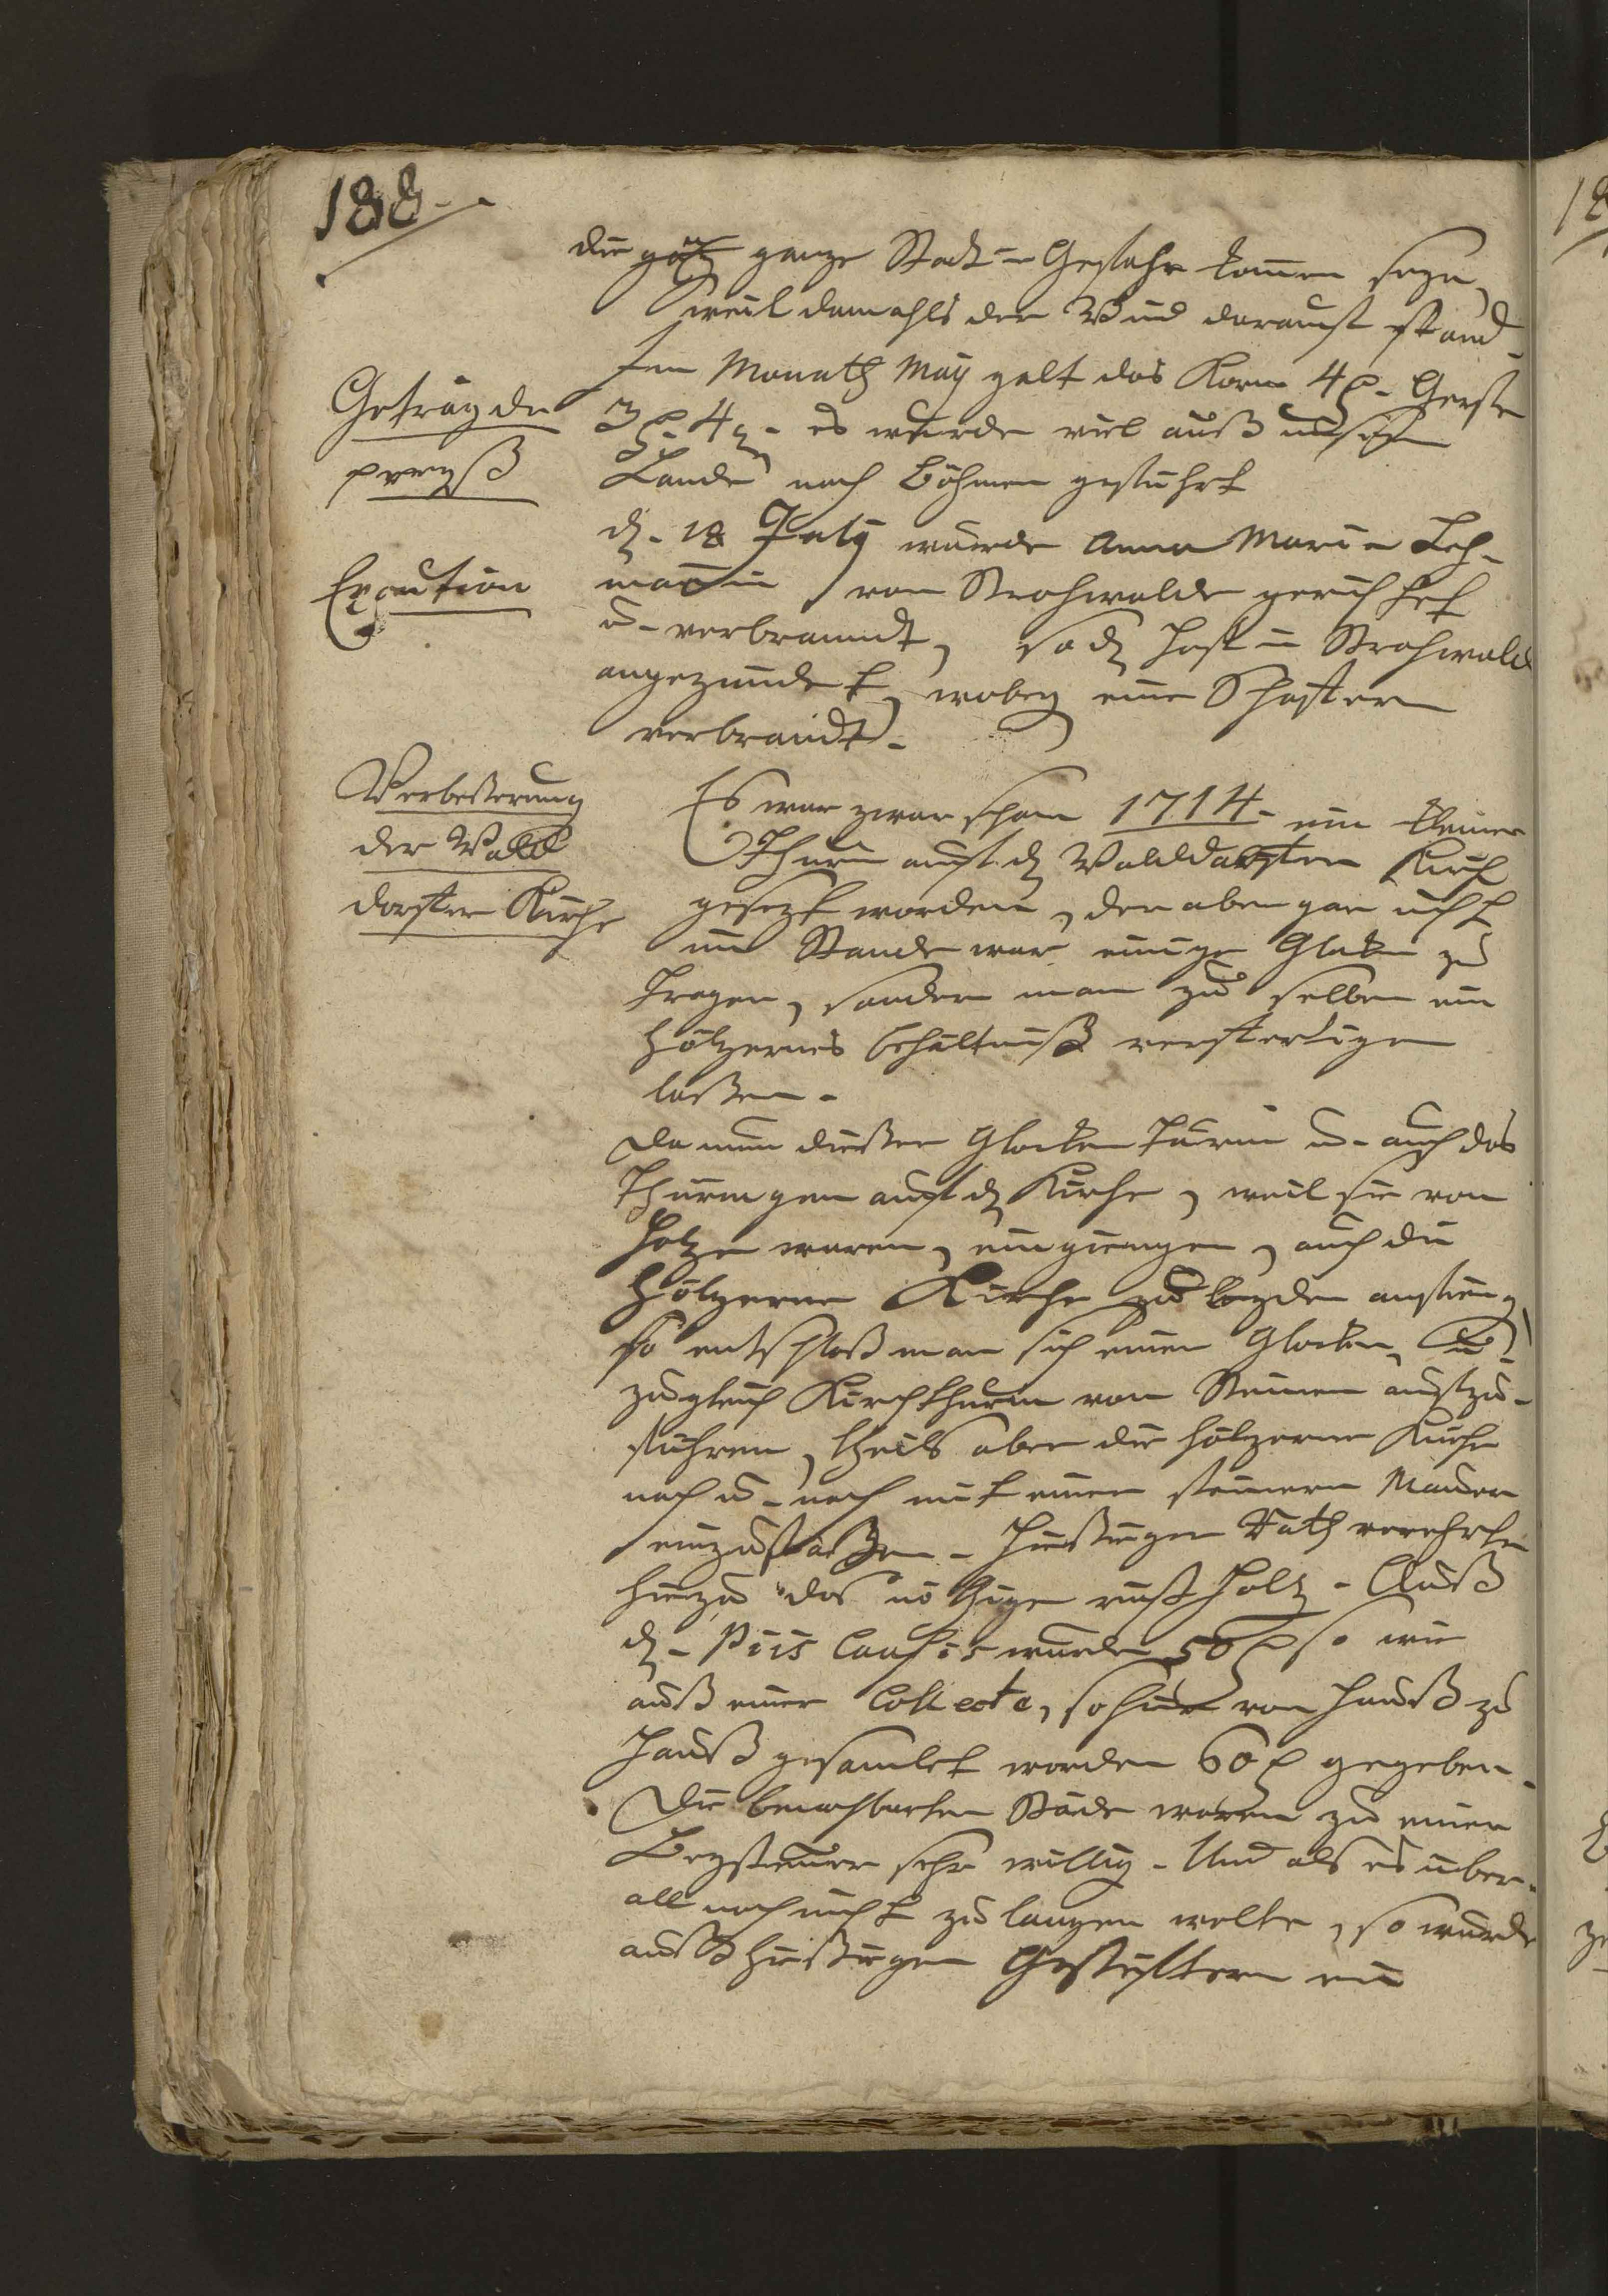 188.
die ganze Stadt in Gefahr komen seyn,
weil damahls der Wind darauf stand.
Getraÿde
preyß
Im Monath Maÿ galt das Korn 4 f. Gerste
3 f. 4 g. es wurde viel auß unsern
Lande nach Böhmen geführt
Execution
d. 18 Julÿ wurde Anna Maria Leh-
mañin von Strohwalde gerichtet
u. verbranndt, so d. Hof in Strohwalde
angezündet, wobey eine Schäferin
verbrandt.
Verbeßerung
der Wald
dorfer Kirche
Es war zwar schon 1714. ein kleiner
Thurm auf d. Walddorfer Kirch
gesezt worden, der aber gar nicht
im Stande war einige Gloken zu
tragen, sondern man zu selben ein
hölzernes Behältniß verfertigen
laßen.
Da nun dießer Glocken Turm u. auch das
Thürmgen auf d. Kirche, weil sie von
Holze waren, eingiengen, auch die
Hölzerne Kirche zu anfieng,
so entschloß man sich einen Glocken, u.
zugleich Kirchthurm von Steinen aufzu-
führen, theils aber die hölzerne Kirche
nach u. nach mit einer steinern Mauer
einzufaßen. Hießiger Rath verehrte
hiezu das nöthige rüst Holz. Auß
d. Piis Causis wurden 50 f so wie
auß einer Collecte, so hier von Hauß zu
Hauß gesamlet worden 60 f gegeben.
Die benachbarten Städe waren zu einer
Beysteuer sehr willig. Und als es über-
all noch nicht zu langen wolte, so wurde
auß hießigen Gotteß ein